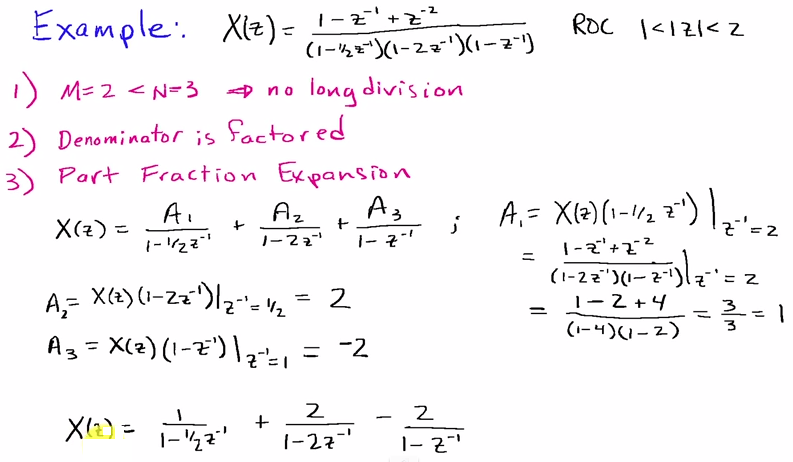 Example: X(z) = (1 - z⁻¹ + z⁻²) / ((1 - ½z⁻¹)(1 - 2z⁻¹)(1 - z⁻¹)) ROC 1<|z|<2
1) M=2 < N=3 ⇒ no long division
2) Denominator is factored
3) Part Fraction Expansion
X(z) = A₁/(1 - ½z⁻¹) + A₂/(1 - 2z⁻¹) + A₃/(1 - z⁻¹) ;
A₁ = X(z)(1 - ½ z⁻¹)|z⁻¹=2
= (1 - z⁻¹ + z⁻²)/((1 - 2z⁻¹)(1 - z⁻¹))|z⁻¹=2
= (1 - 2 + 4)/((1-4)(1-2)) = 3/3 = 1
A₂ = X(z)(1 - 2z⁻¹)|z⁻¹=½ = 2
A₃ = X(z)(1 - z⁻¹)|z⁻¹=1 = -2
X(z) = 1/(1 - ½z⁻¹) + 2/(1 - 2z⁻¹) - 2/(1 - z⁻¹)